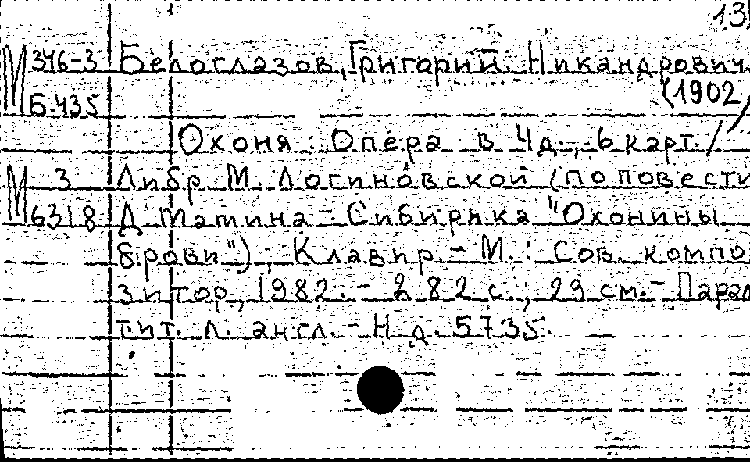 13
М 346-3 Белоглазов, Григорий Никандрович
Б-435 (1902)
Охоня : Опера в 4 д., 6 карт. /
М 3 Либр М. Логиновской (по повести
6318 Д Мамина-Сибиряка "Охонины
брови") ; Клавир. - М. : Сов. компо
зитор, 1982. - 282 с. ; 29 см. - Парал
тит. л. англ. - Н.д. 5735.